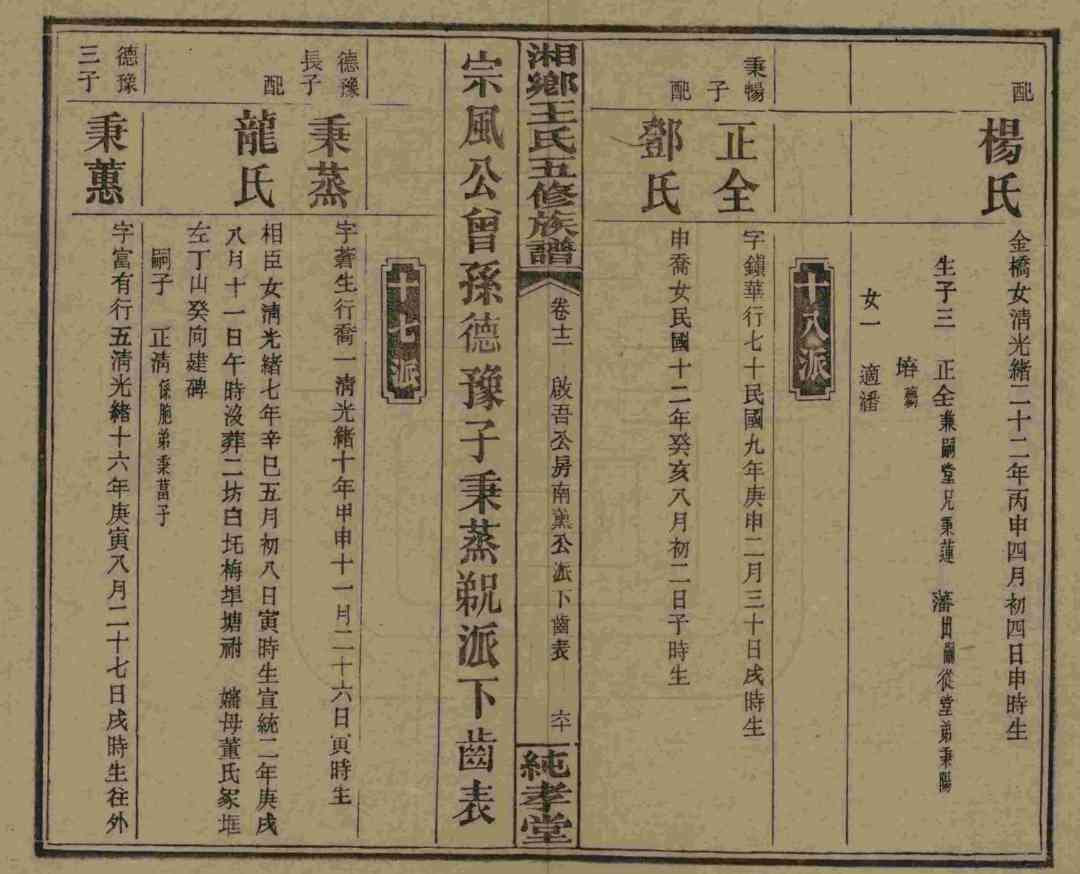 配
楊氏
金橋女清光緒二十二年丙申四月初四日申時生
生子三　正全兼嗣堂兄秉蓮　藩出嗣從堂弟秉陽
培
女一　適潘
十八派
秉暢子
正全
字鎮華行七十民國九年庚申二月三十日戌時生
配
鄧氏
申喬女民國十二年癸亥八月初二日子時生
湘鄉王氏五修族譜
卷十二
啟吾公房南薰公派下齒表
六十
純孝堂
宗風公曾孫德豫子秉蒸覜派下齒表
十七派
德豫長子
秉蒸
字蒼生行喬一清光緒十年甲申十一月二十六日寅時生
配
龍氏
相臣女清光緒七年辛巳五月初八日寅時生宣統二年庚戌
八月十一日午時沒葬二坊白圫梅埠塘祔　嬸母董氏冢堆
左丁山癸向建碑
嗣子　正清係胞弟秉菖子
德豫三子
秉蕙
字富有行五清光緒十六年庚寅八月二十七日戌時生往外